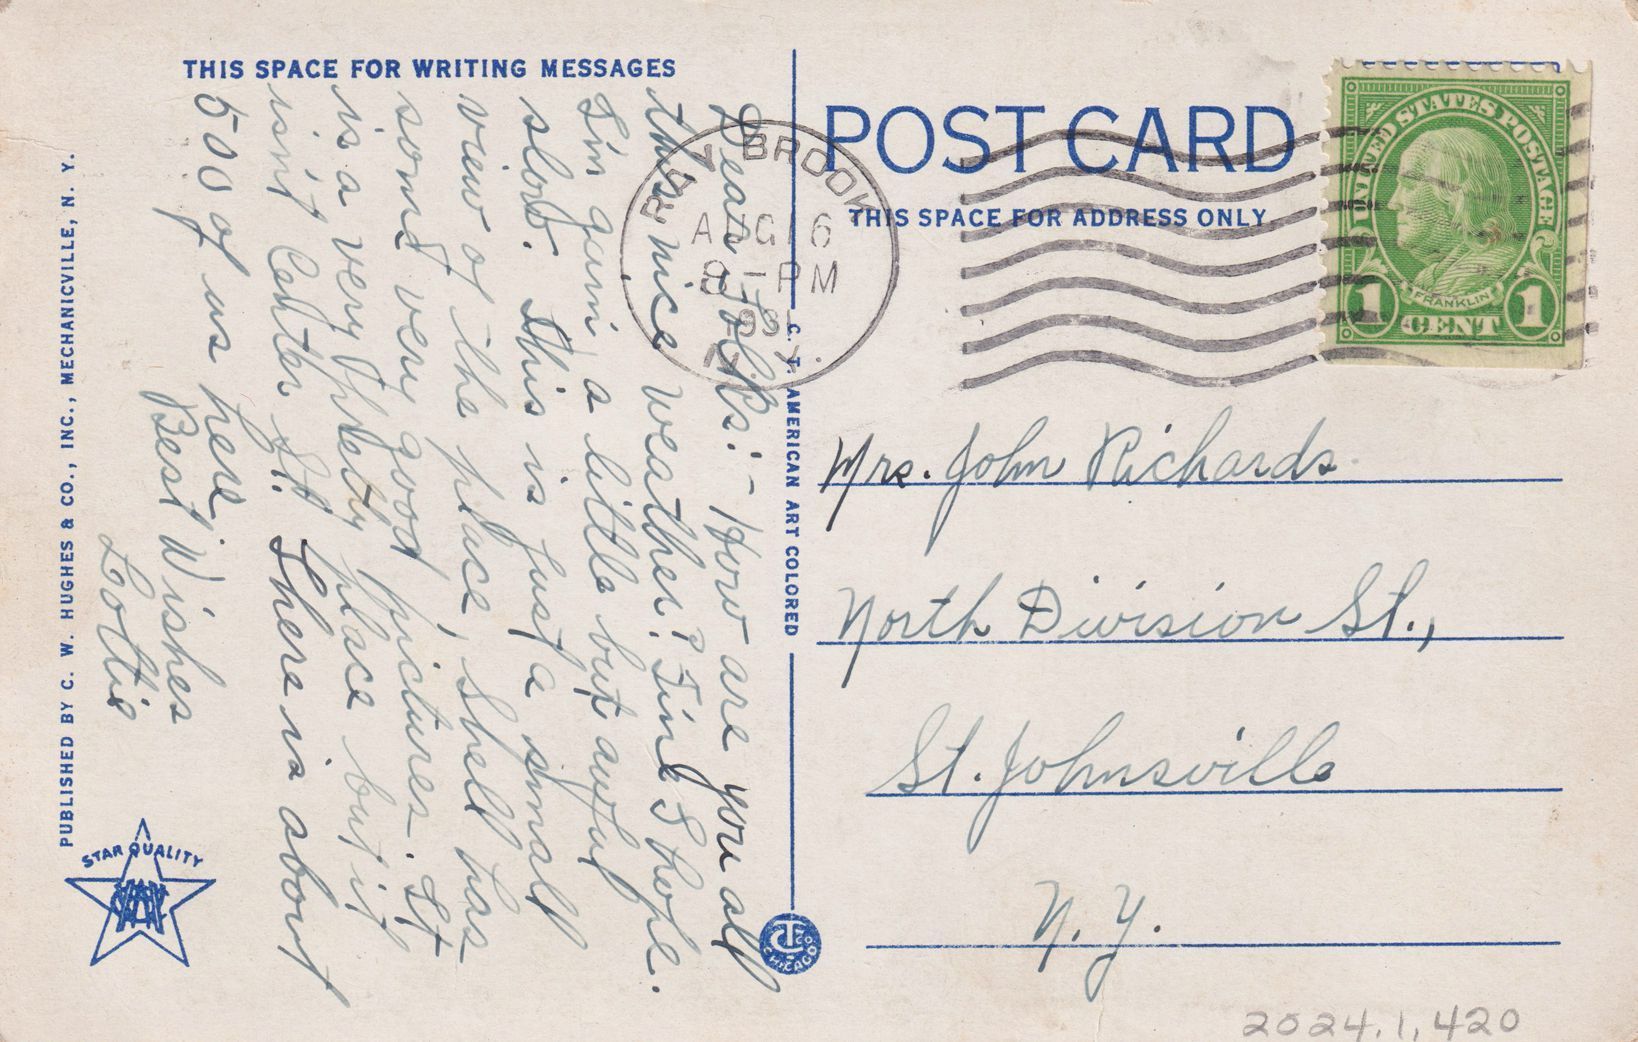 THIS SPACE FOR WRITING MESSAGES
Dear Folks:- How are you all
this nice weather? Fine I hope.
I'm gaini a little but awful
slow. This is just a small
view of the place, Shell has
some very good pictures. It
is a very pretty place but it
isn't Center St! There is about
500 of us here
Best Wishes
Lottie
PUBLISHED BY C. W. HUGHES & CO., INC., MECHANICVILLE, N. Y.
STAR QUALITY
C. T. AMERICAN ART COLORED
CT CO
CHICAGO
POST CARD
THIS SPACE FOR ADDRESS ONLY
RAY BROOK
AUG 16
8 - PM
N.Y.
UNITED STATES POSTAGE
FRANKLIN
1 CENT 1
Mrs. John Richards
North Division St.,
St. Johnsville
N. Y.
2024.1.420